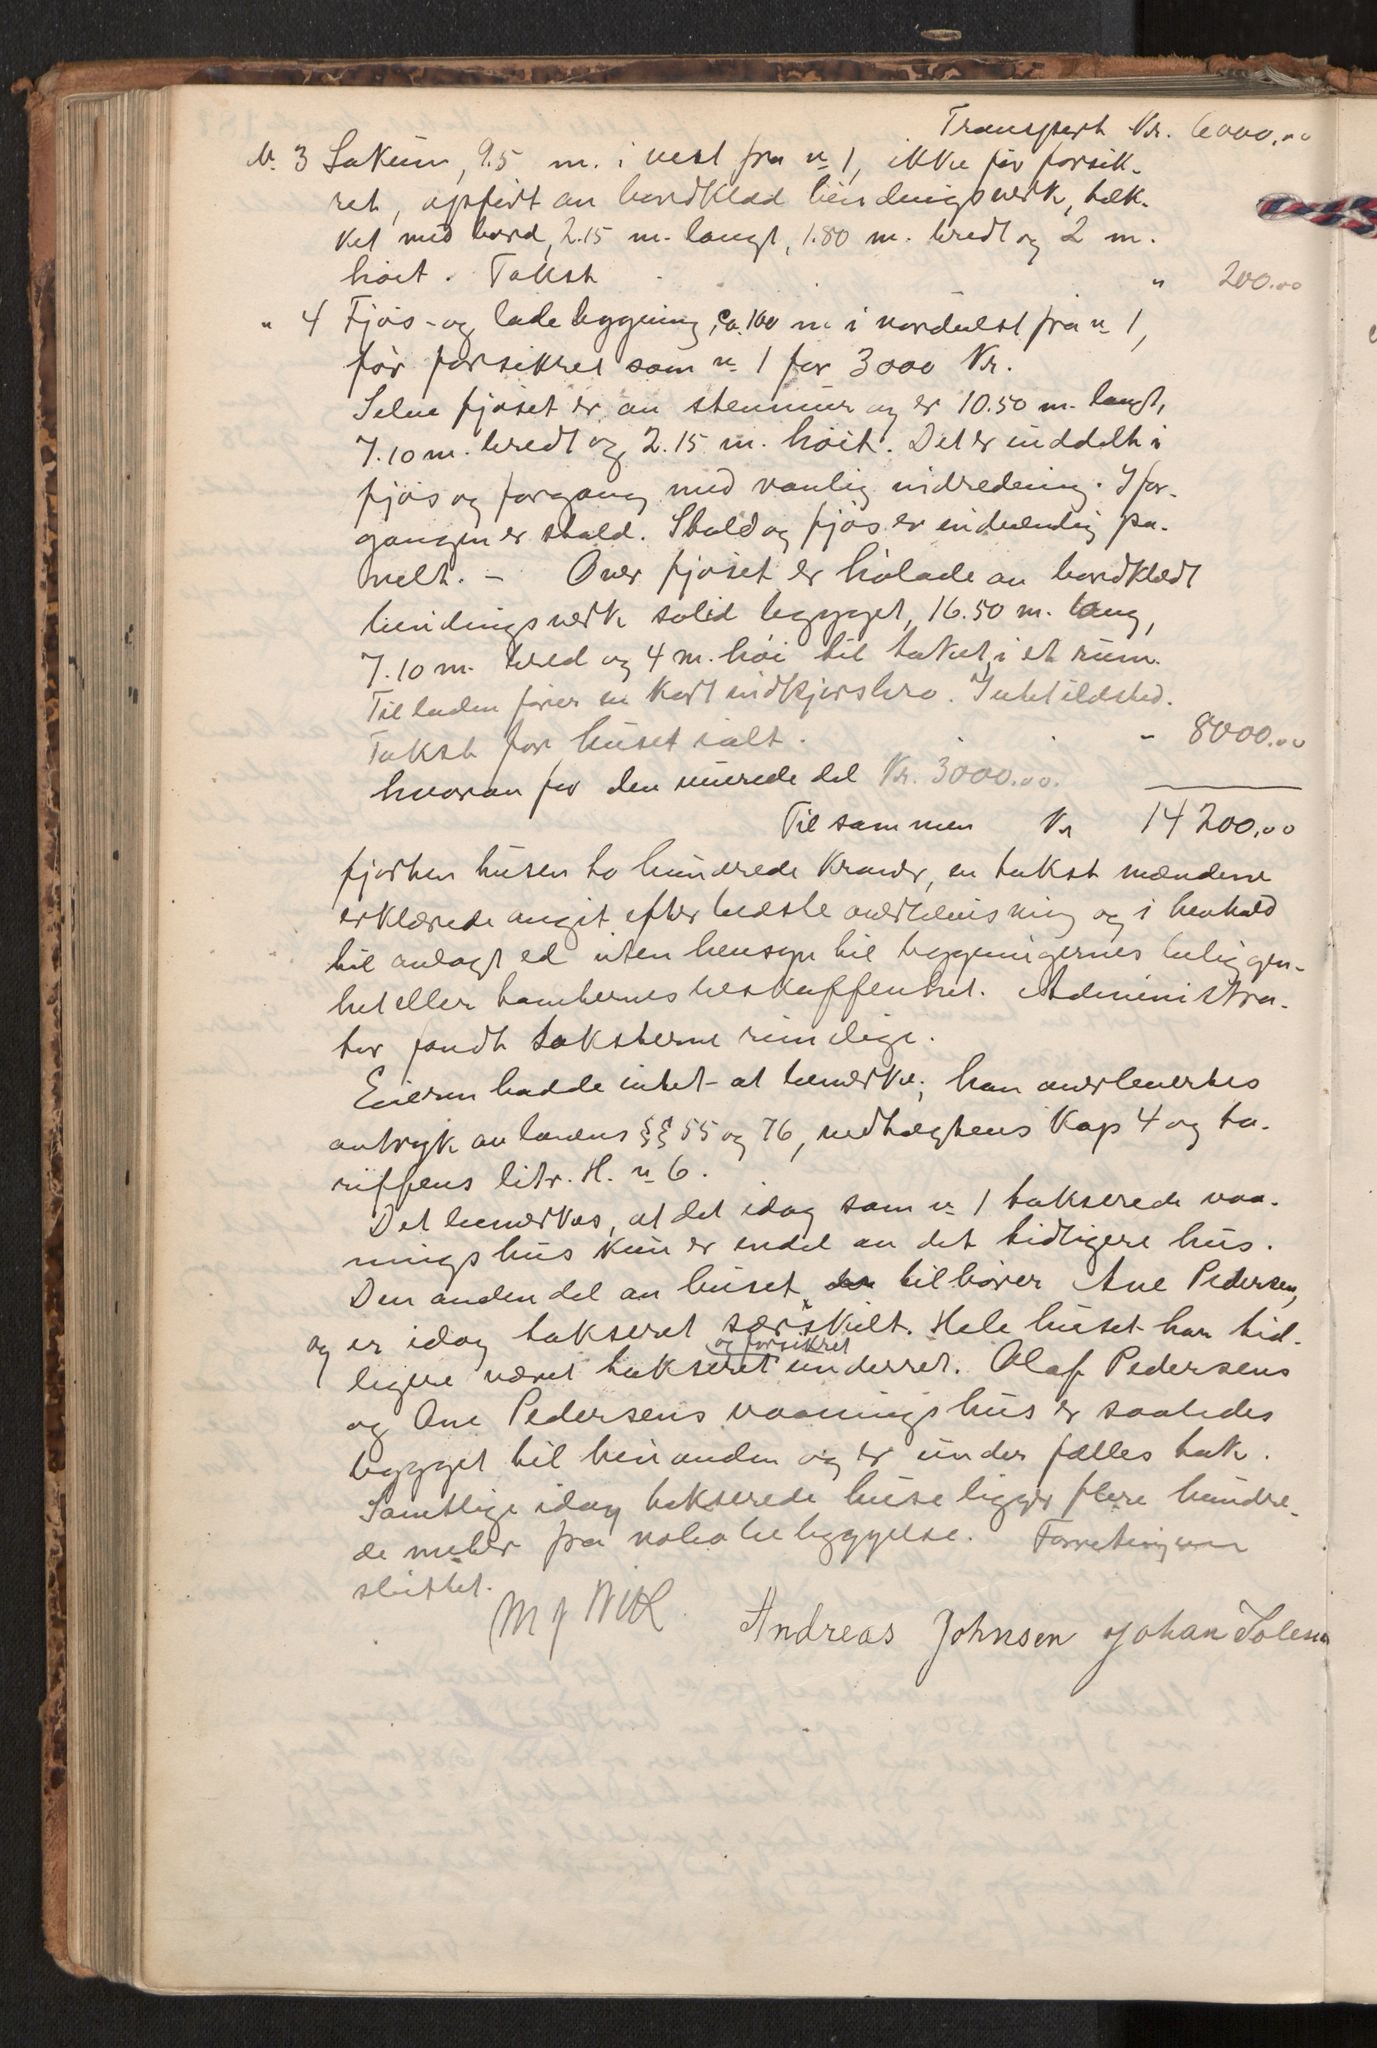 Transport Kr. 6000,00
N. 3 Lokum, 9.5 m. i vest fra n 1, ikke før forsik-
ret, opført av bordklæd bindingsverk, tæk-
ket med bord, 2.15 m. langt, 1.80 m. bredt og 2 m.
høit. Takst " 200.00
" 4 Fjøs- og ladebygning, ca. 100 m i nordvest fra n 1,
før forsikret som n 1 for 3000 Kr.
Selve fjøset er av stenmur og er 10.50 m. langt,
7.10 m. bredt og 2.15 m. høit. Det er inddelt i
fjøs og forgang med vanlig indredning. I for-
gangen er stald. Stald og fjøs er indvendig pa-
nelt. - Over fjøset er hølade av bordklædt
bindingsverk solid bygget, 16.50 m. lang,
7.10 m. bred og 4 m. høi til taket, i et rum.
Til laden fører en kort indkjørsbro. Intet ildsted.
Takst for huset ialt. - 8000.00
hvorav for den murede del Kr. 3000.00.
Tilsammen Kr 14200,00
fjorten tusen to hundrede kroner, en takst mændene
erklærede avgit efter bedste overbevisning og i henhold
til avlagt ed uten hensyn til bygningernes belig gen-
het eller tomternes beskaffenhet. Administra-
tor fandt taksterne rimelige.
Eieren hadde intet at bemerke; han overlevertes
avtryk av lovens §§ 55 og 76, vedtægtens Kap 4 og ta-
riffens litr. H. n 6.
Det bemerkes, at det idag som n 1 takserede vaa-
ningshus kun er endel av det tidligere hus.
Den anden del av huset tilhører Ane Pedersen,
og er idag taksert særskilt. Hele huset har tid-
og forsikret
ligere været takseret underret. Olaf Pedersens
og Ane Pedersens vaaningshus er saaledes
bygget til hinanden og er under fælles tak.
Samtlige idag takserede huse ligger flere hundre-
de meter fra nabobebyggelse. Forretning
sluttet.
Andreas Johnsen Johan